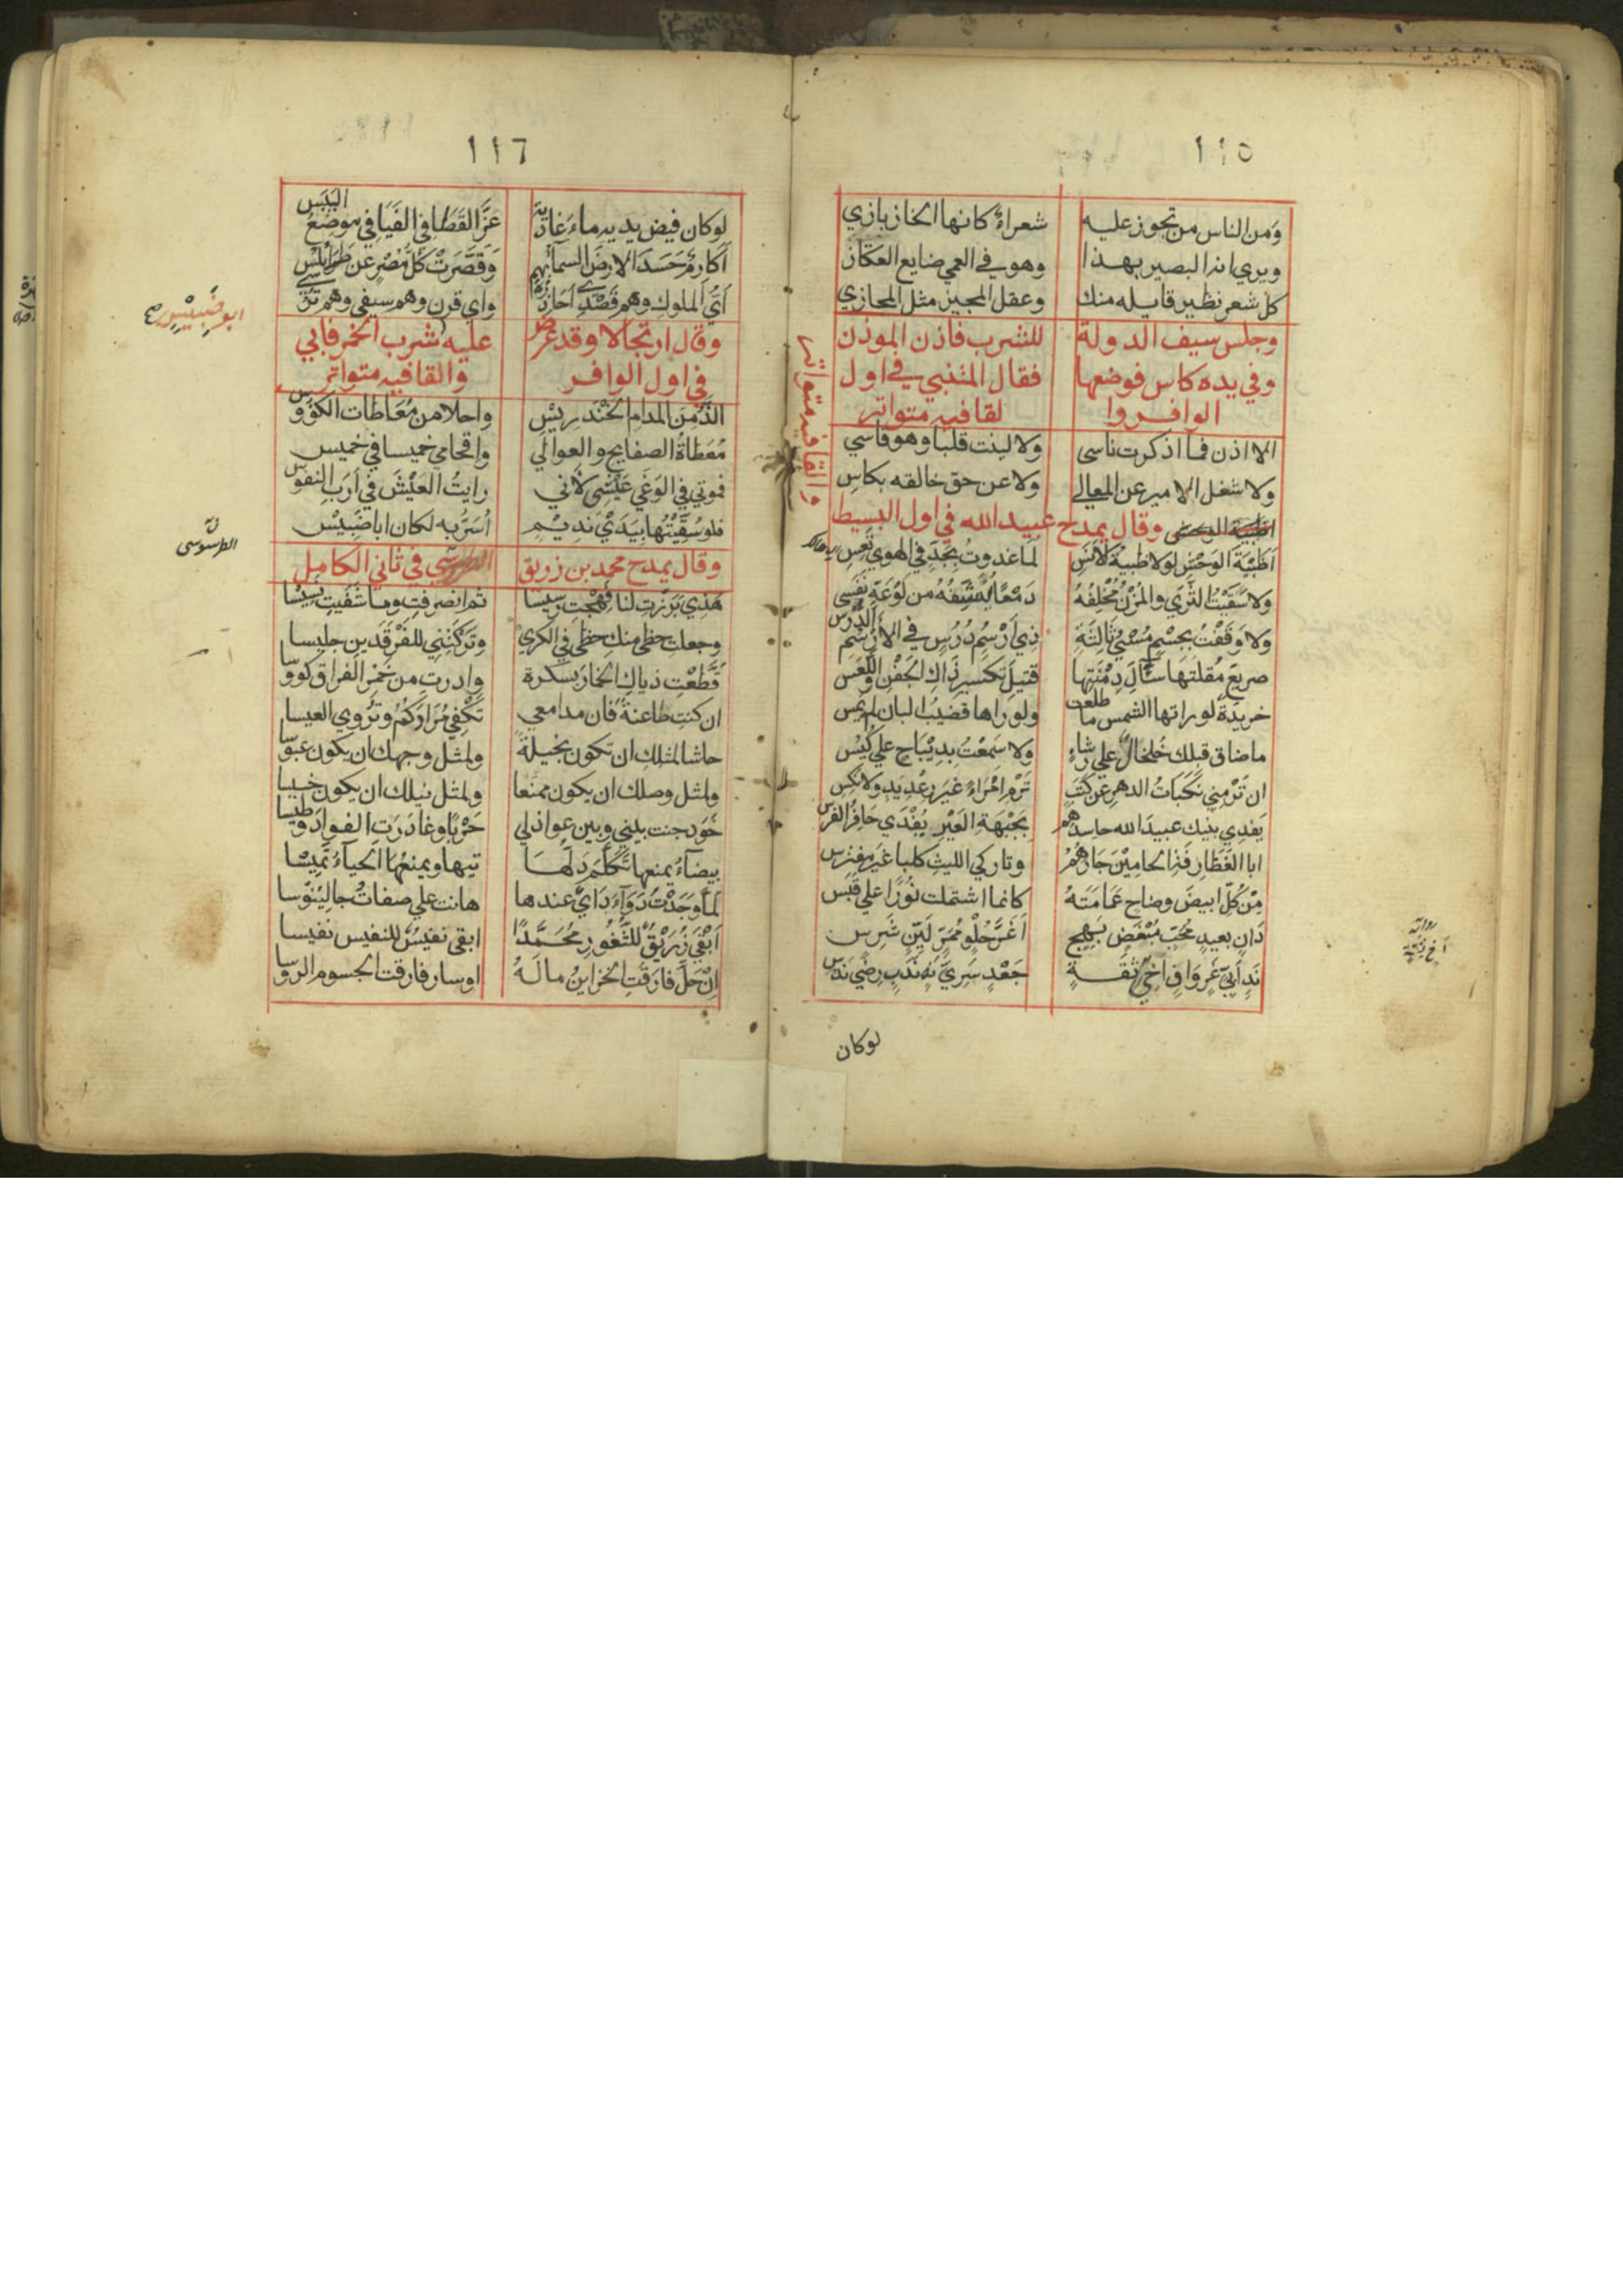 ١١٥
ومن الناس من تجوز عليه شعراء كانها الخازبازي
ويري انه البصير بهذا وهو في العمي ضايع العكاز
كل شعر نظير قايله منك وعقل المجيز مثل المجازي
وجلس سيف الدولة للشرب فاذن الموذن
وفي يده كاس فوضعها فقال المتنبي في اول
الوافر وا لقافيه متواتر
الا اذن فما اذكرت ناسى ولا لينت قلبا وهو قاسي
ولا شغل الامير عن المعالي ولا عن حق خالقه بكاس
اظبية الوحش وقال يمدح عبيد الله في اول البسيط
والقافيه متواتر
اَظَبْيَةَ الوَحْشِ لولا ظبيةُ الاَنَسِ لما غدوتُ بجَدٍّ في الهوي تَعِسِ
ولا سَقَيْتُ الثَّرَي والمُزْنُ مُخْلِفُهُ دَمْعًا يُنَشِّفُهُ من لَوْعَةٍ نَفَسِى
ولا وَقَفْتُ بجِسْمٍ مُسْيَ ثالِثَةٍ ذي اَرْسُمٍ دُرُسٍ في الاَرْسُمِ الدُّرُسِ
صريعَ مُقلتها سَئّالَ دِمْنَتِها قتيلَ تكسيرِ ذاكِ الجَفْنِ واللَّعَسِ
خريدةٌ لو راتها الشمس ما طلعت ولو راها قضيبُ البان لم يَمِسِ
ما ضاق قبلك خلخالٌ علي رشاءٍ ولا سَمِعْتُ بدِيْبَاجٍ علي كَنِسِ
ان تَرْمِني نَكَبَاتُ الدهرِ عن كَثَبٍ تَرْمِ امْرَاءً غيرَ رِعْدِيدٍ ولا نكِسِ
يَفدِي بنيك عبيدَ الله حاسدهم بجَبْهَةِ العَيْرِ يُفْدَي حَافِرُ الفرس
ابا الغَطَارِفَةِ الحامِيْنَ جَارَهُمُ وتاركي الليثِ كلبا غيرَ مفترس
مِنْ كُلِّ ابيضَ وضاحٍ عَمَامَتُهُ كانما اشتملت نُورًا علي قَبَسِ
دَانٍ بعيدٍ مُحِبٍّ مُبْغَضٍ بَهِجٍ اَغَرَّ حُلْوٍ مُمِرٍّ لَيِّنٍ شَرِسِ
نَدٍ اَبِيٍّ غَرٍ وَافٍ اَخِي ثِقَةٍ جَعْدٍ سَرِيٍّ نَهٍ نَدْبٍ رِضًي نَدُسِ
لوكان
١١٦
لو كان فيض يديه ماءَ غَادِيَةٍ عَزَّ القَطَا في الفَيَافي موضعُ اليَبَسِ
اَكارمٌ حَسَدَ الارضَ السماءُ بهم وَقَصَّرَتْ كلُّ مِصْرٍ عن طَرَابُلُسِ
اَيُّ الملوكِ وهم قَصْدِي اُحَاذِرُهُ واي قرن وهم سيفي وهم تُرُسي
وقال ارتجالا وقد عرض عليه شرب الخمر فابي
في اول الوافر والقافيه متواتر
الَذُّ مِنَ المدامِ الخَنْدَريْسِ واحلا من مُعَاطات الكؤوس
مُعَطاةُ الصفايحِ والعوالي واقحامي خميسا في خميس
فموتي في الوَغَي عَيْشِى لاَني رايتُ العَيْشَ في اَرَبِ النفوس
فلو سُقِّيْتُها بِيَدَيْ نديْمٍ اُسَرُّ به لكان ابا ضَبِيْس
ابو ضَبِيْس
وقال يمدح محمد بن زريق الطرسوسي في ثاني الكامل
الطرسوسى
هَذِي بَرَزْتِ لنا فهِجْتِ رسيسا ثم انصرفتِ وما شفَيتِ نسيسا
وجعلتِ حظى منك حظى في الكري وتَرَكْتِني للفَرْقَدينِ جليسا
قَطَّعْتِ ذياكِ الخمارَ بسكرة وادرتِ من خَمْرِ الفراق كؤوسا
ان كنتِ ظاعنةً فان مدامعي تَكْفِي مَزَادَكُمُ وتُرْوِي العيسا
حاشا لمثلكِ ان تكون بخيلةً ولمثل وجهك ان يكون عبوسا
ولمثل وصلك ان يكون ممنّعا ولمثل نيلك ان يكون خسيسا
خَوْدٌ جنت بيني وبين عواذلي حَرْبًا وغادَرَتِ الفوادَ وطيسا
بيضآءُ يمنعها تَكَلَّمَ دَلُّهَا تيها ويمنعُها الحياءُ تَمِيْسا
لمّا وَجَدْتُ دَوَآءَ دَايَ عندها هانت علي صفاتُ جالِيْنوسا
اَبْقَي زُرَيْقٌ للثُّغُورِ مُحَمَّدًا ابقى نفيسٌ للنفيس نفيسا
اِنْ حَلَّ فارَقَتِ الخزاينُ مالَهُ اوسار فارقت الجسوم الروسا